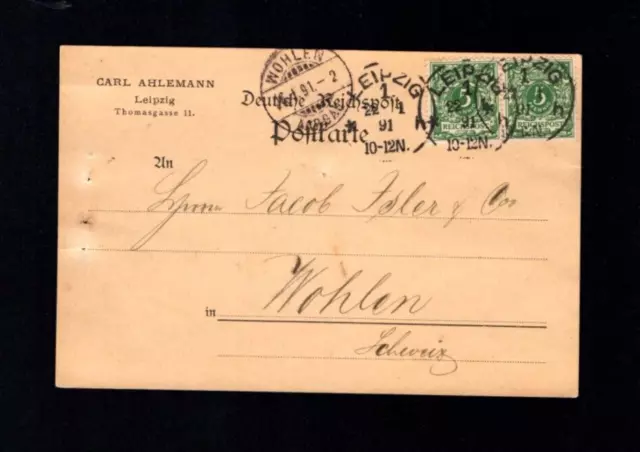 CARL AHLEMANN
Leipzig
Thomasgasse 11.
WOHLEN
91.-2
Deutsche Reichspost
Postkarte
LEIPZIG
1
22 1
91
10-12N.
LEIPZIG
1
91
10-12N.
LEIPZIG
1
h
5
REICHSPOST
5
REICHSPOST
An
Herrn Jacob Isler & Co
in Wohlen
Schweiz